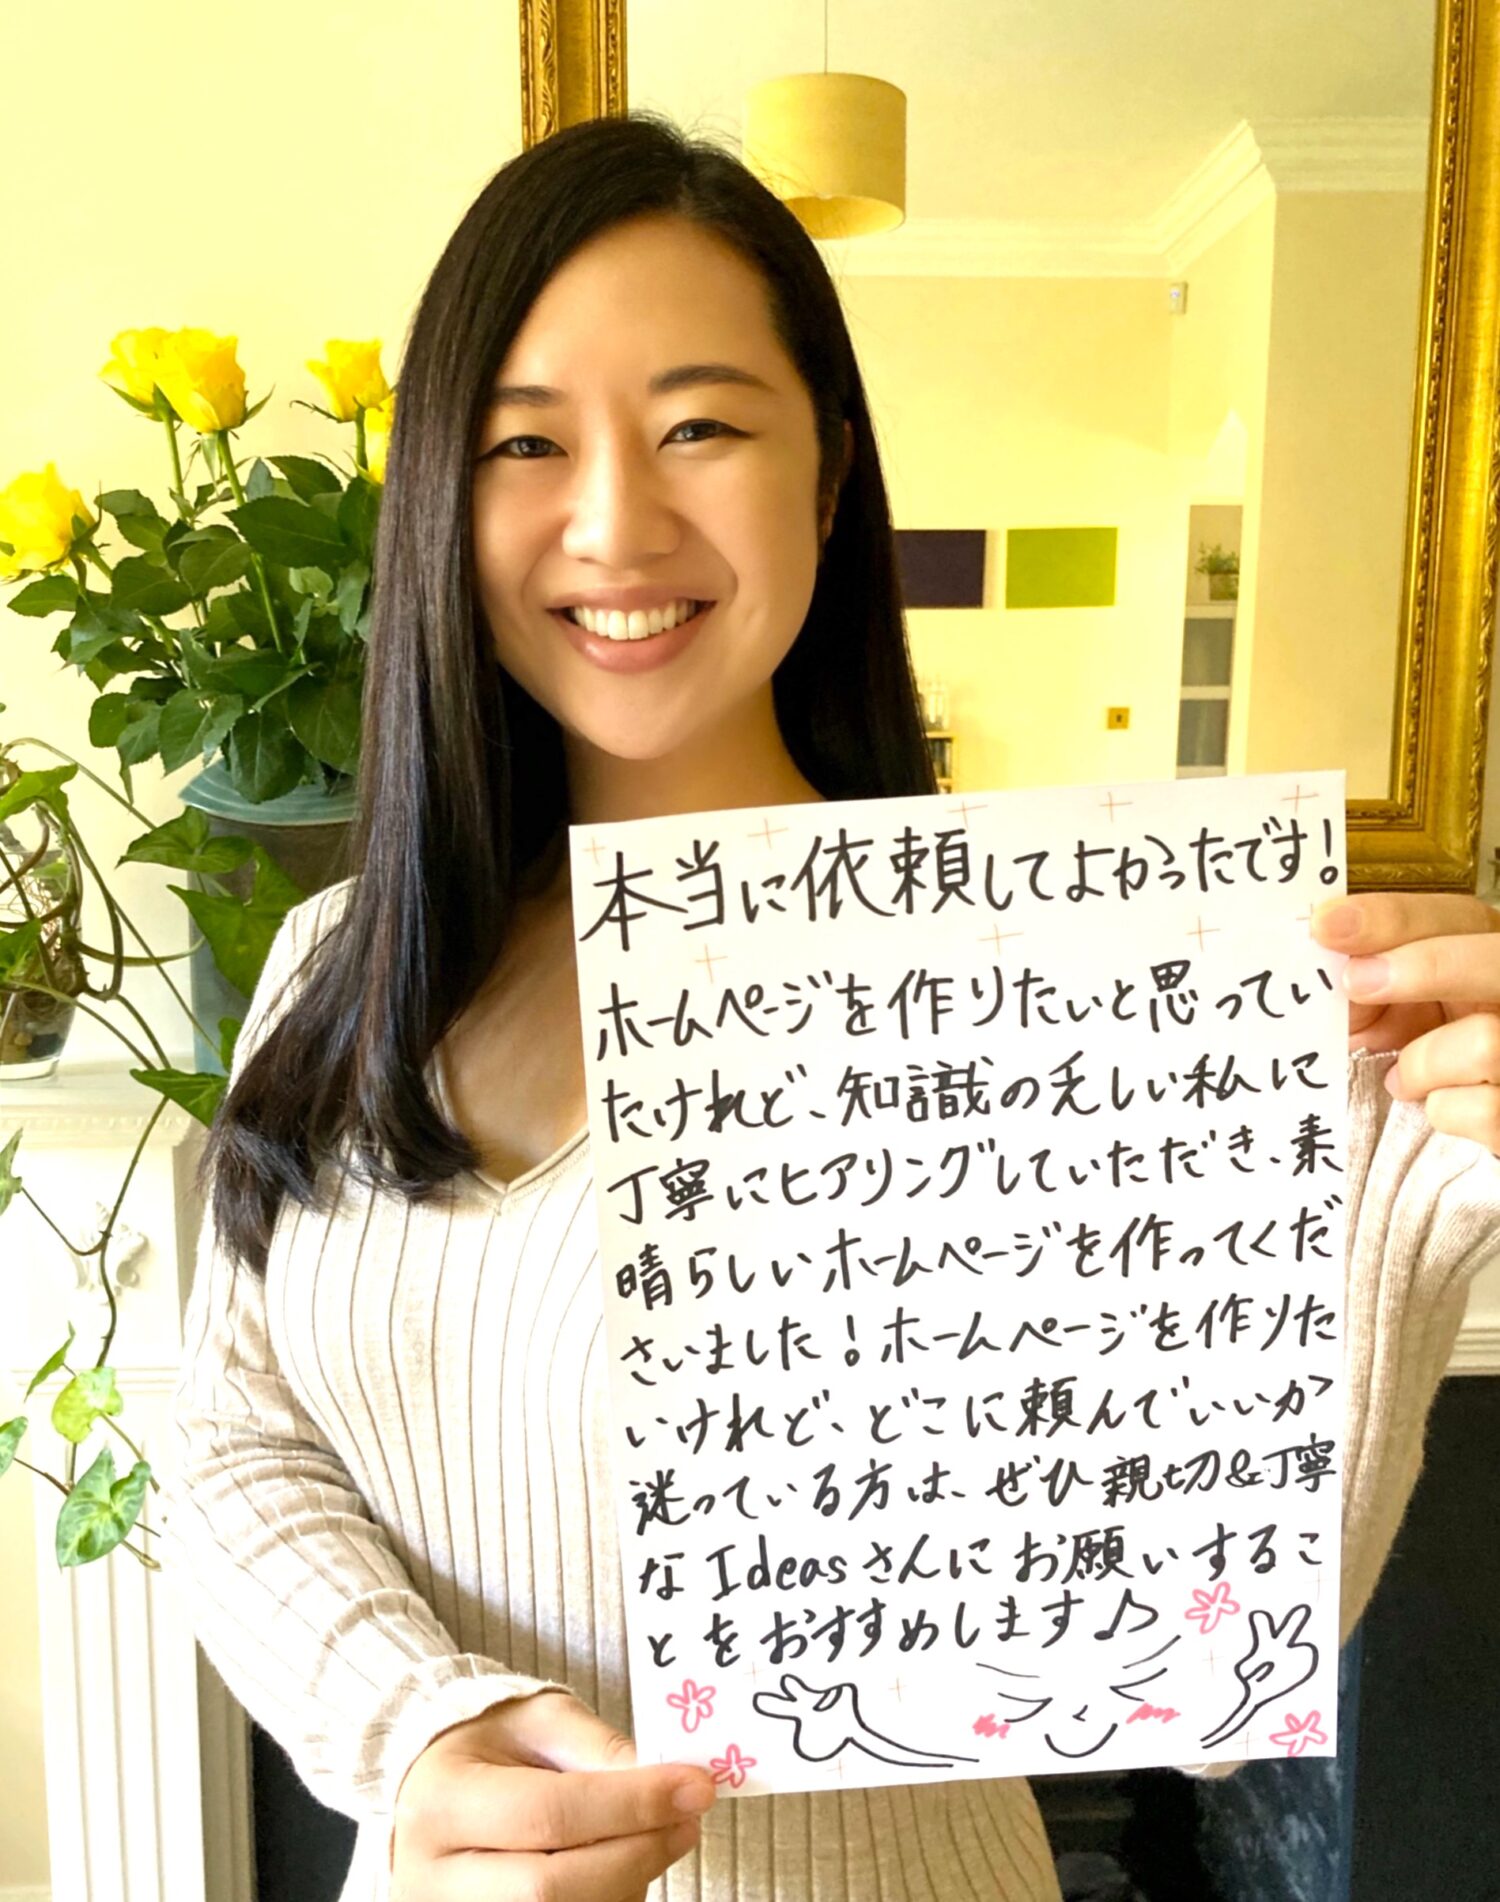 本当に依頼してよかったです！
ホームページを作りたいと思ってい
たけれど、知識の乏しい私に
丁寧にヒアリングしていただき、素
晴らしいホームページを作ってくだ
さいました！ホームページを作りた
いけれど、どこに頼んでいいか
迷っている方は、ぜひ親切&丁寧
なIdeasさんにお願いするこ
とをおすすめします♪